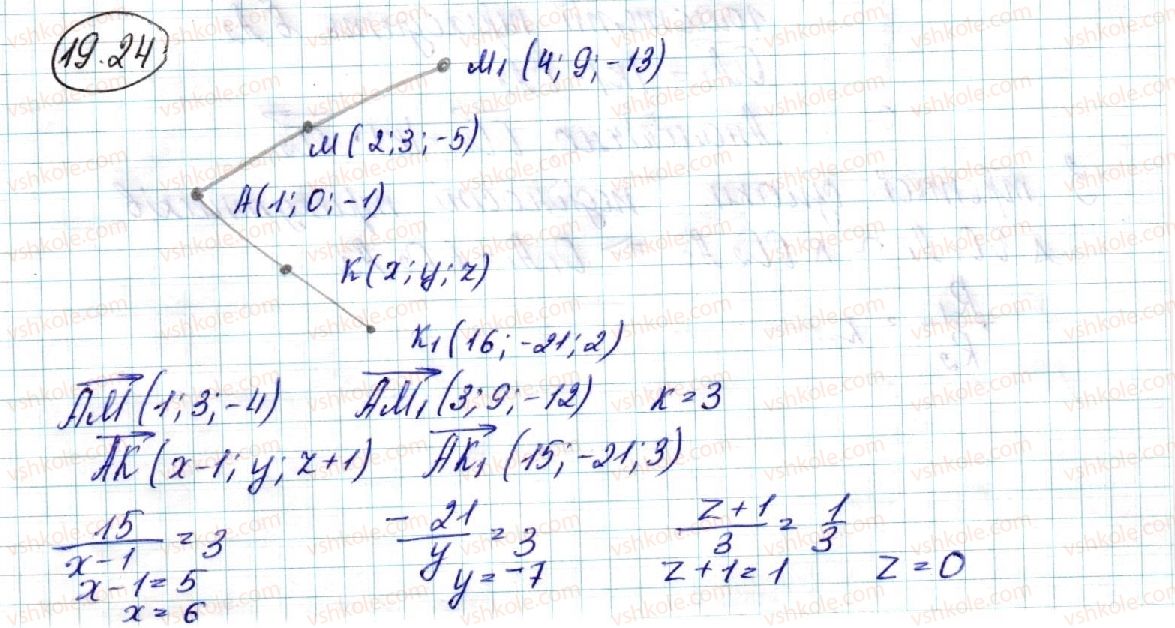 19.24
M₁ (4; 9; -13)
M (2; 3; -5)
A (1; 0; -1)
K (x; y; z)
K₁ (16; -21; 2)
AM→ (1; 3; -4)  AM₁→ (3; 9; -12)  k = 3
AK→ (x-1; y; z+1)  AK₁→ (15; -21; 3)
15/(x-1) = 3  -21/y = 3  (z+1)/3 = 1/3
x-1 = 5  y = -7  z+1 = 1  z = 0
x = 6